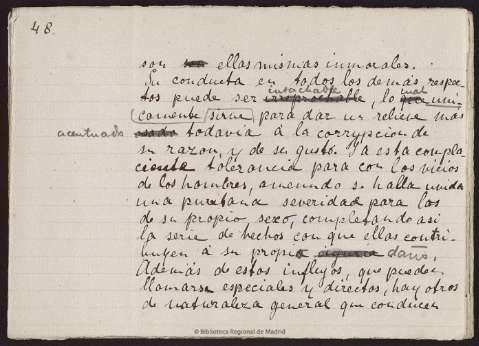 48.
son ellas mismas inmorales.
Su conducta en todos los demás respec-
tos puede ser intachable, lo cual úni-
camente sirve para dar un relieve más
acentuado todavía á la corrupción de
su razón, y de su gusto. Y a esta compla-
ciente tolerancia para con los vicios
de los hombres, amenudo se halla unida
una puritana severidad para las
de su propio sexo, completando así
la serie de hechos con que ellas contri-
buyen á su propio daño.
Además de estos influjos, que pueden
llamarse especiales y directos, hay otros
de naturaleza general que conducen
© Biblioteca Regional de Madrid